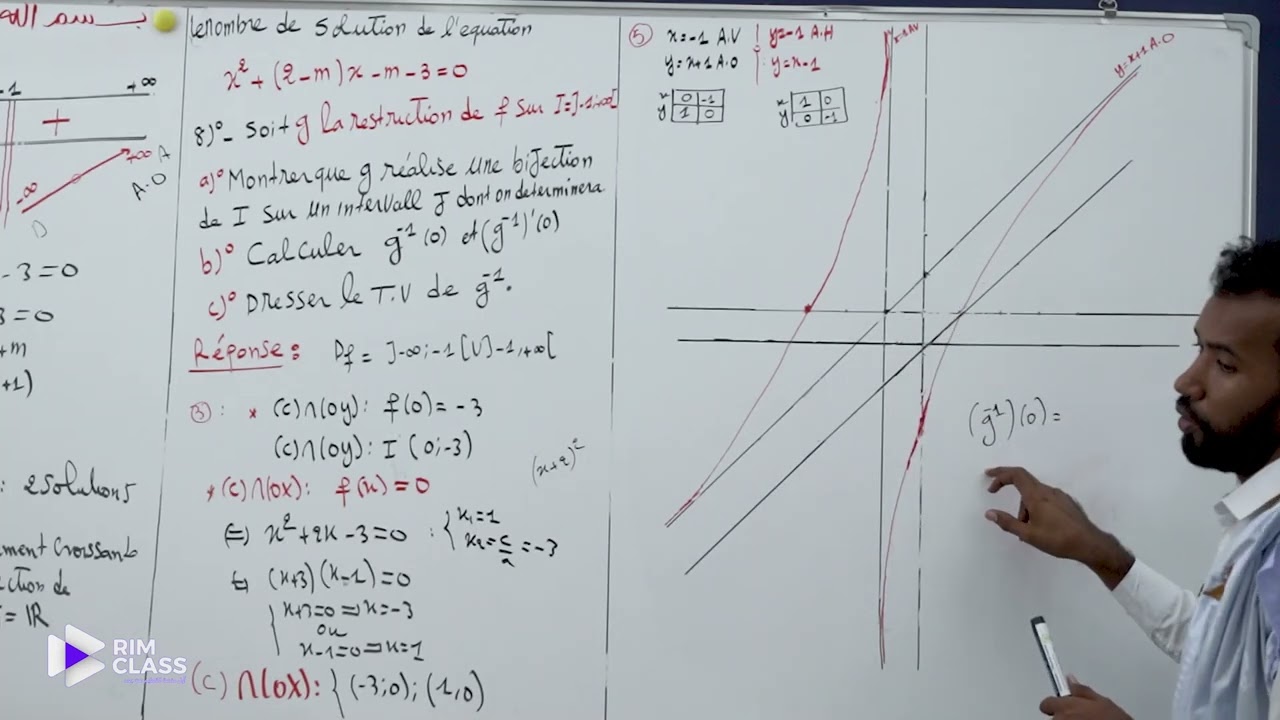 -1 +∞
+
+∞ A
A.O
-∞
D
-3=0
3=0
+m
+1)
: 2 Solutions
ement Croissante
ction de
= IR
RIM
CLASS
Lenombre de Solution de l'equation
x²+(2-m)x-m-3=0
8)°- Soit g la restruction de f sur I=]-1,+∞[
a)° Montrer que g réalise une bijection
de I sur un intervall J dont on determinera
b)° Calculer g⁻¹(0) et (g⁻¹)'(0)
c)° Dresser le T.V de g⁻¹.
Réponse: Df = ]-∞;-1[U]-1,+∞[
③: * (C)∩(oy): f(0)=-3
(C)∩(oy): I (0;-3)
(x+2)²
* (C)∩(ox): f(x)=0
⇔ x²+2x-3=0 : { x₁=1
x₂=c/a=-3
⇔ (x+3)(x-1)=0
{ x+3=0 ⇒ x=-3
ou
x-1=0 ⇒ x=1
(C)∩(ox): {(-3;0);(1,0)
⑤ x=-1 A.V y=-1 A.H
y=x+1 A.O : y=x-1
x 0 -1
y 1 0
x 1 0
y 0 -1
x-1 AV
y=x+1 A.O
(g⁻¹)(0)=